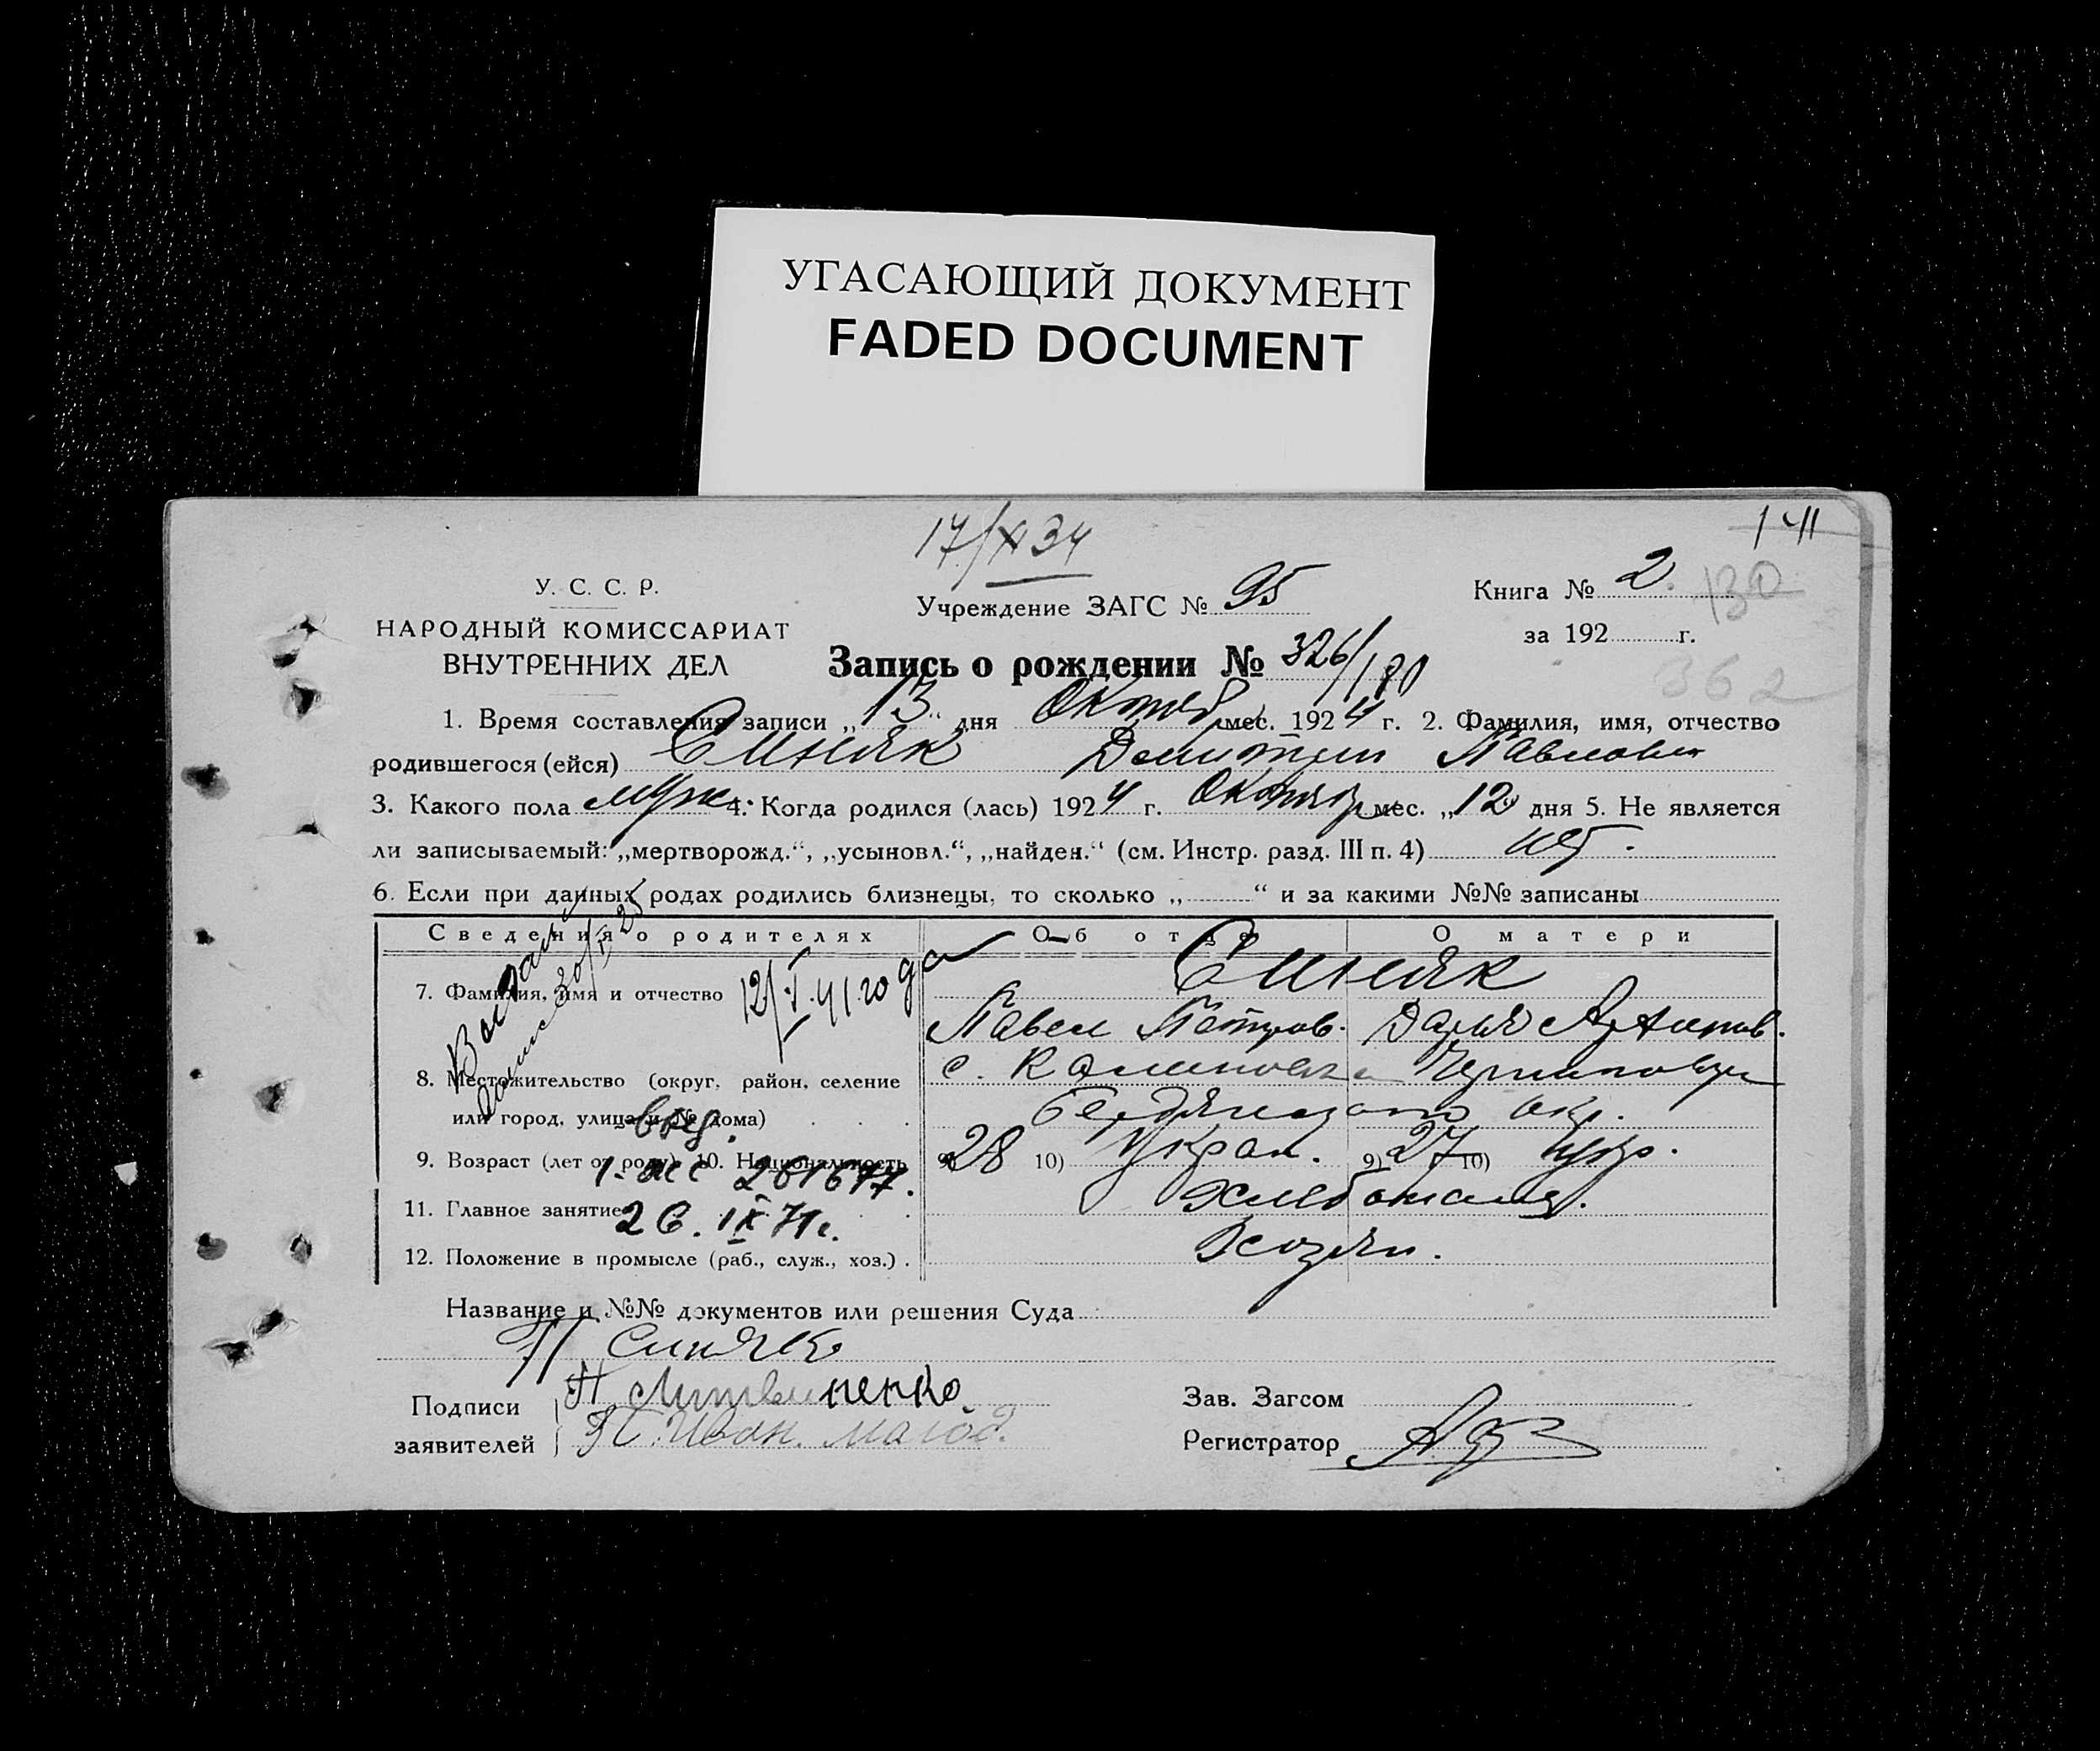 УГАСАЮЩИЙ ДОКУМЕНТ
FADED DOCUMENT
141
17/XI 34
130
У. С. С. Р.
НАРОДНЫЙ КОМИССАРИАТ
ВНУТРЕННИХ ДЕЛ
Учреждение ЗАГС № 95
Книга № 2
за 192 г.
362
Запись о рождении № 326/180
1. Время составления записи „13“ дня Октяб мес. 1924 г. 2. Фамилия, имя, отчество
родившегося (ейся) Синяк Дмитрий Павлович
3. Какого пола муж. 4. Когда родился (лась) 1924 г. Октябр мес. „12“ дня 5. Не является
ли записываемый: „мертворожд.“, „усыновл.“, „найден.“ (см. Инстр. разд. III п. 4) нет.
6. Если при данных родах родились близнецы, то сколько „ “ и за какими №№ записаны
Сведения о родителях Об отце О матери
12/I.41 года
7. Фамилия, имя и отчество Синяк
Павел Петров. Дарья
8. Местожительство (округ, район, селение с. Калиновка
или город, улица и № дома) Бердянского окр.
9. Возраст (лет от роду) 10. Национальность 9) 28 10) Украи. 9) 27 10) укр.
1-ЖС 201677.
11. Главное занятие Хлебопашец.
26.IX 71г.
12. Положение в промысле (раб., служ., хоз.) Хозяин.
Название и №№ документов или решения Суда
П Синяк
Подписи
заявителей
П Литвиненко
Зав. Загсом
Регистратор